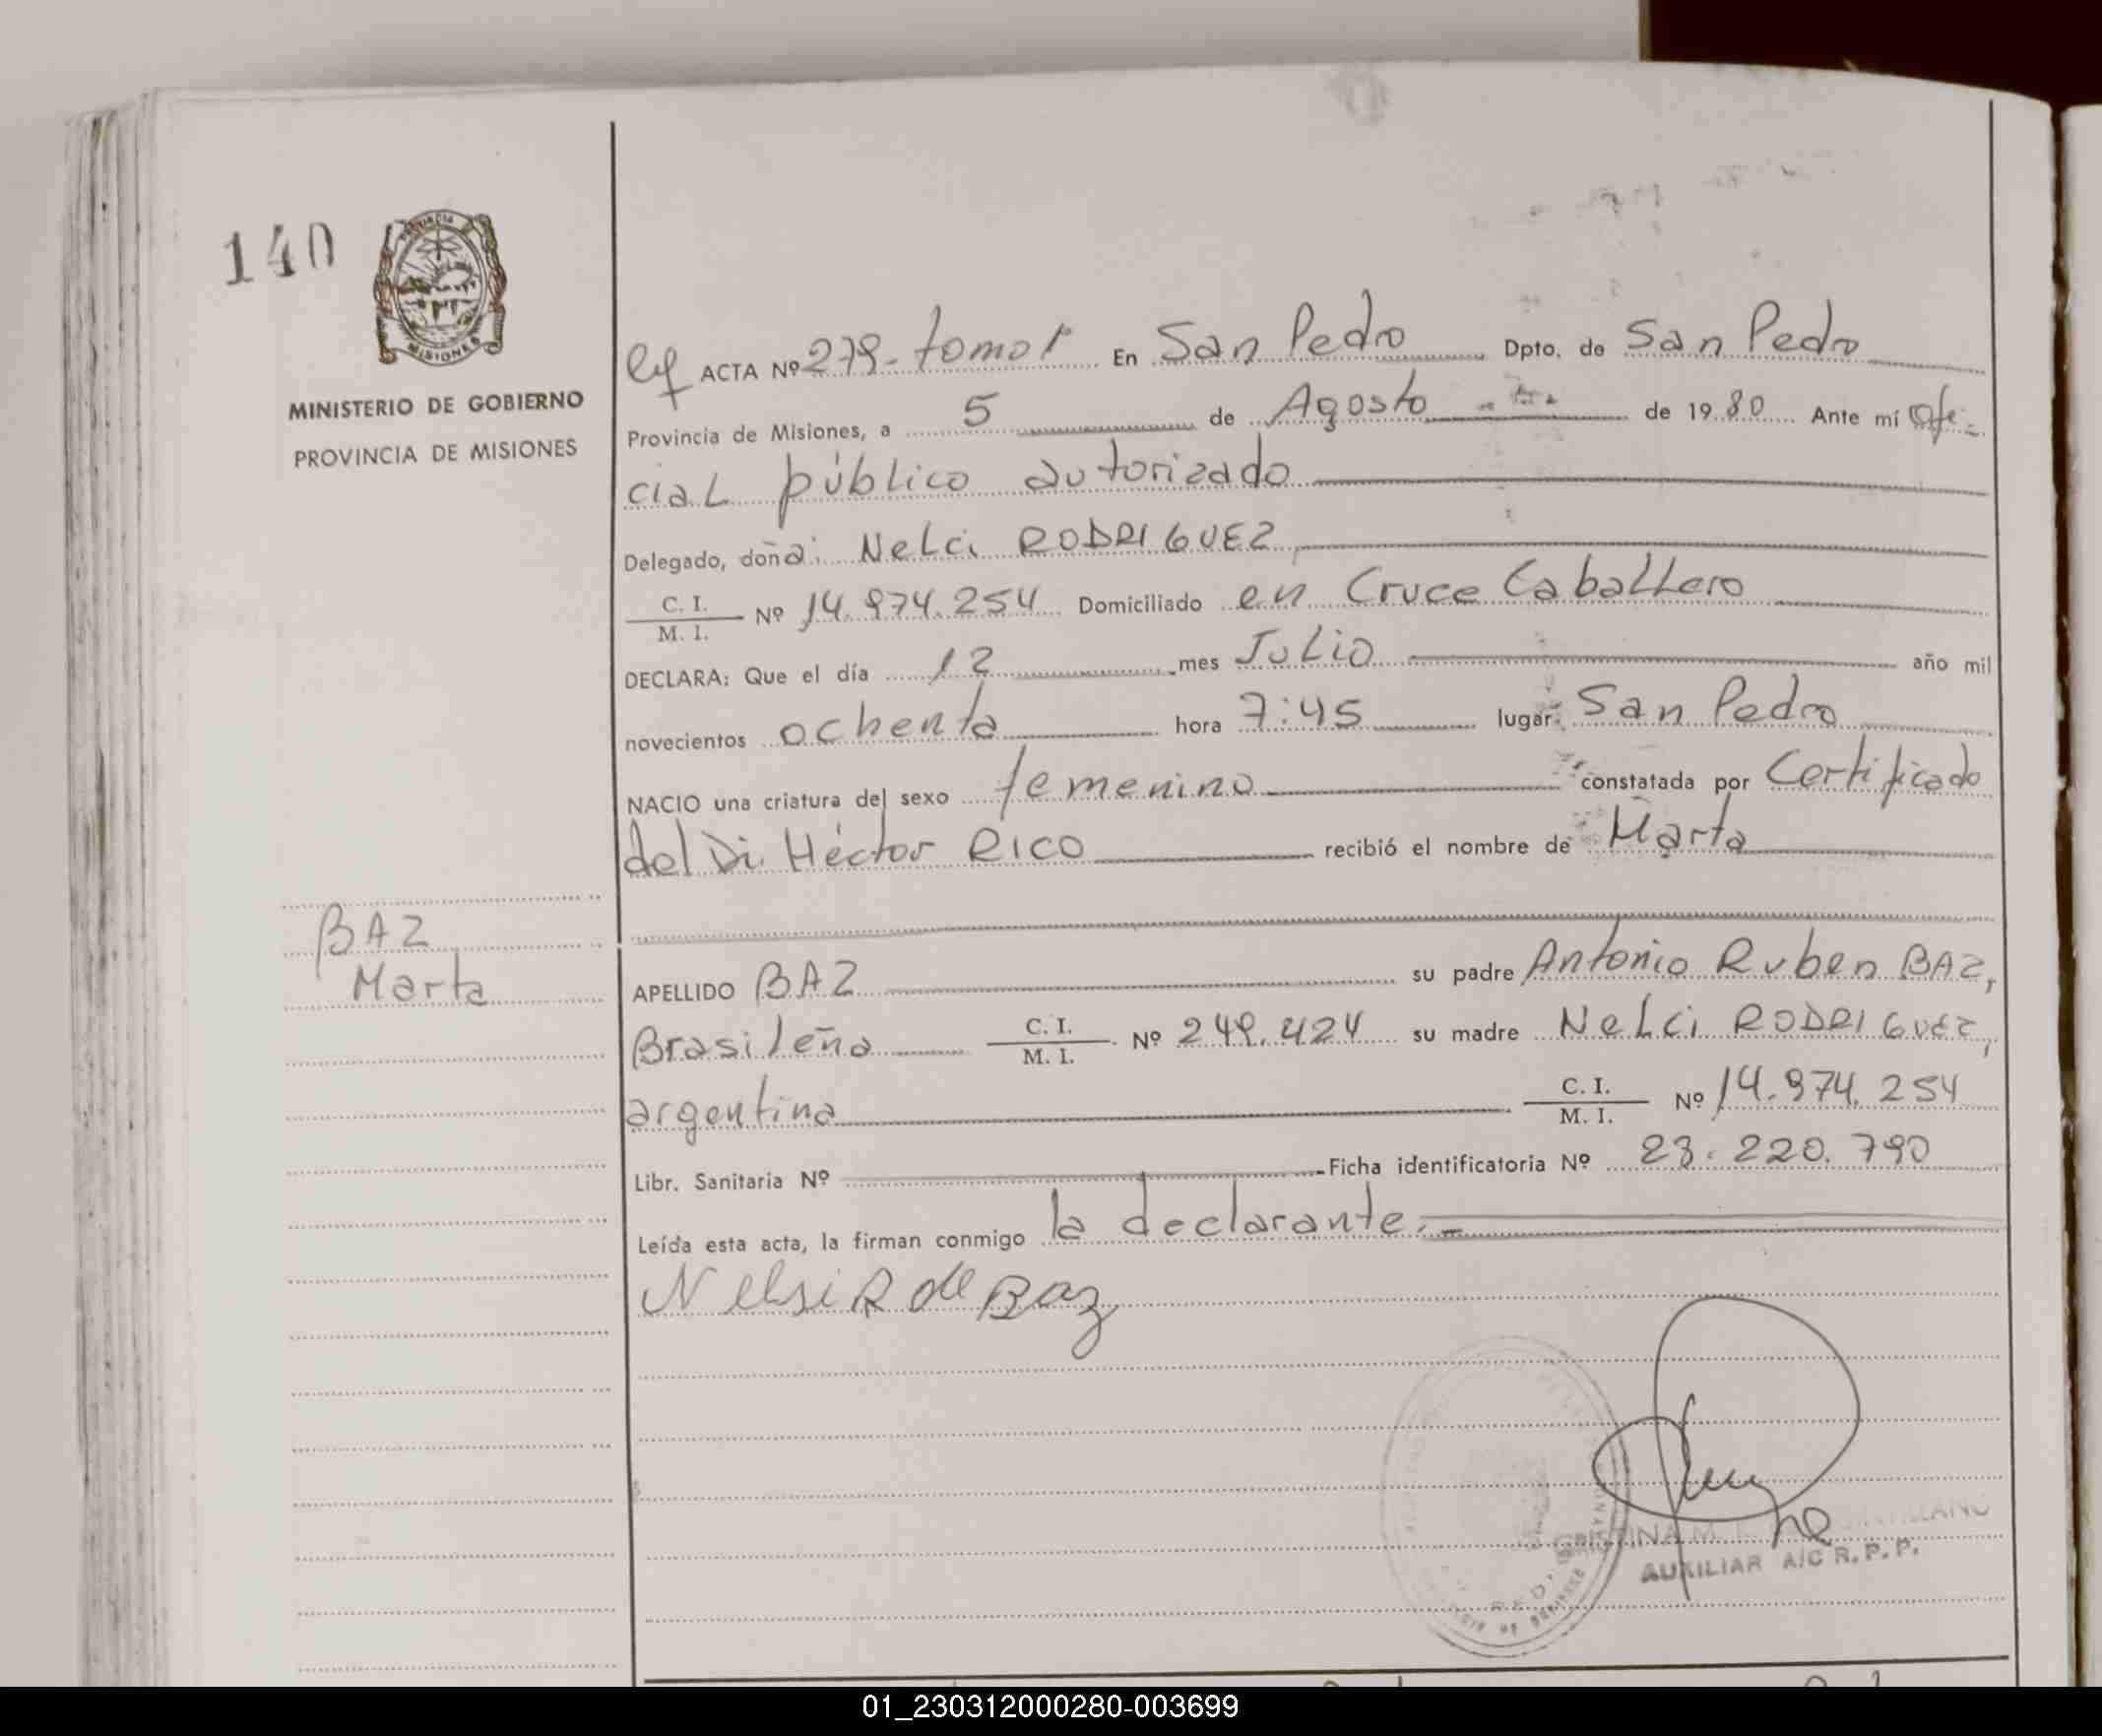 140
PROVINCIA
MISIONES
MINISTERIO DE GOBIERNO
PROVINCIA DE MISIONES
ACTA Nº 279- tomo 1º En San Pedro Dpto. de San Pedro
Provincia de Misiones, a 5 de Agosto de 1980 Ante mí Ofi-
cial público autorizado
Delegado, doña: Nelci RODRIGUEZ,
C. I.
M. I. Nº 14.974.254 Domiciliado en Cruce Caballero
DECLARA: Que el día 12 mes Julio año mil
novecientos ochenta hora 7:45 lugar: San Pedro
NACIO una criatura del sexo femenino constatada por Certificado
del Dr. Héctor RICO recibió el nombre de Marta
BAZ
Marta
APELLIDO BAZ su padre Antonio Ruben BAZ,
Brasileño C. I. M. I. Nº 249.424 su madre Nelci RODRIGUEZ,
argentina C. I. M. I. Nº 14.974.254
Libr. Sanitaria Nº Ficha identificatoria Nº 28.220.790
Leída esta acta, la firman conmigo la declarante.-
Nelsi R de Baz
AUXILIAR A/C R.P.P.
01_230312000280-003699